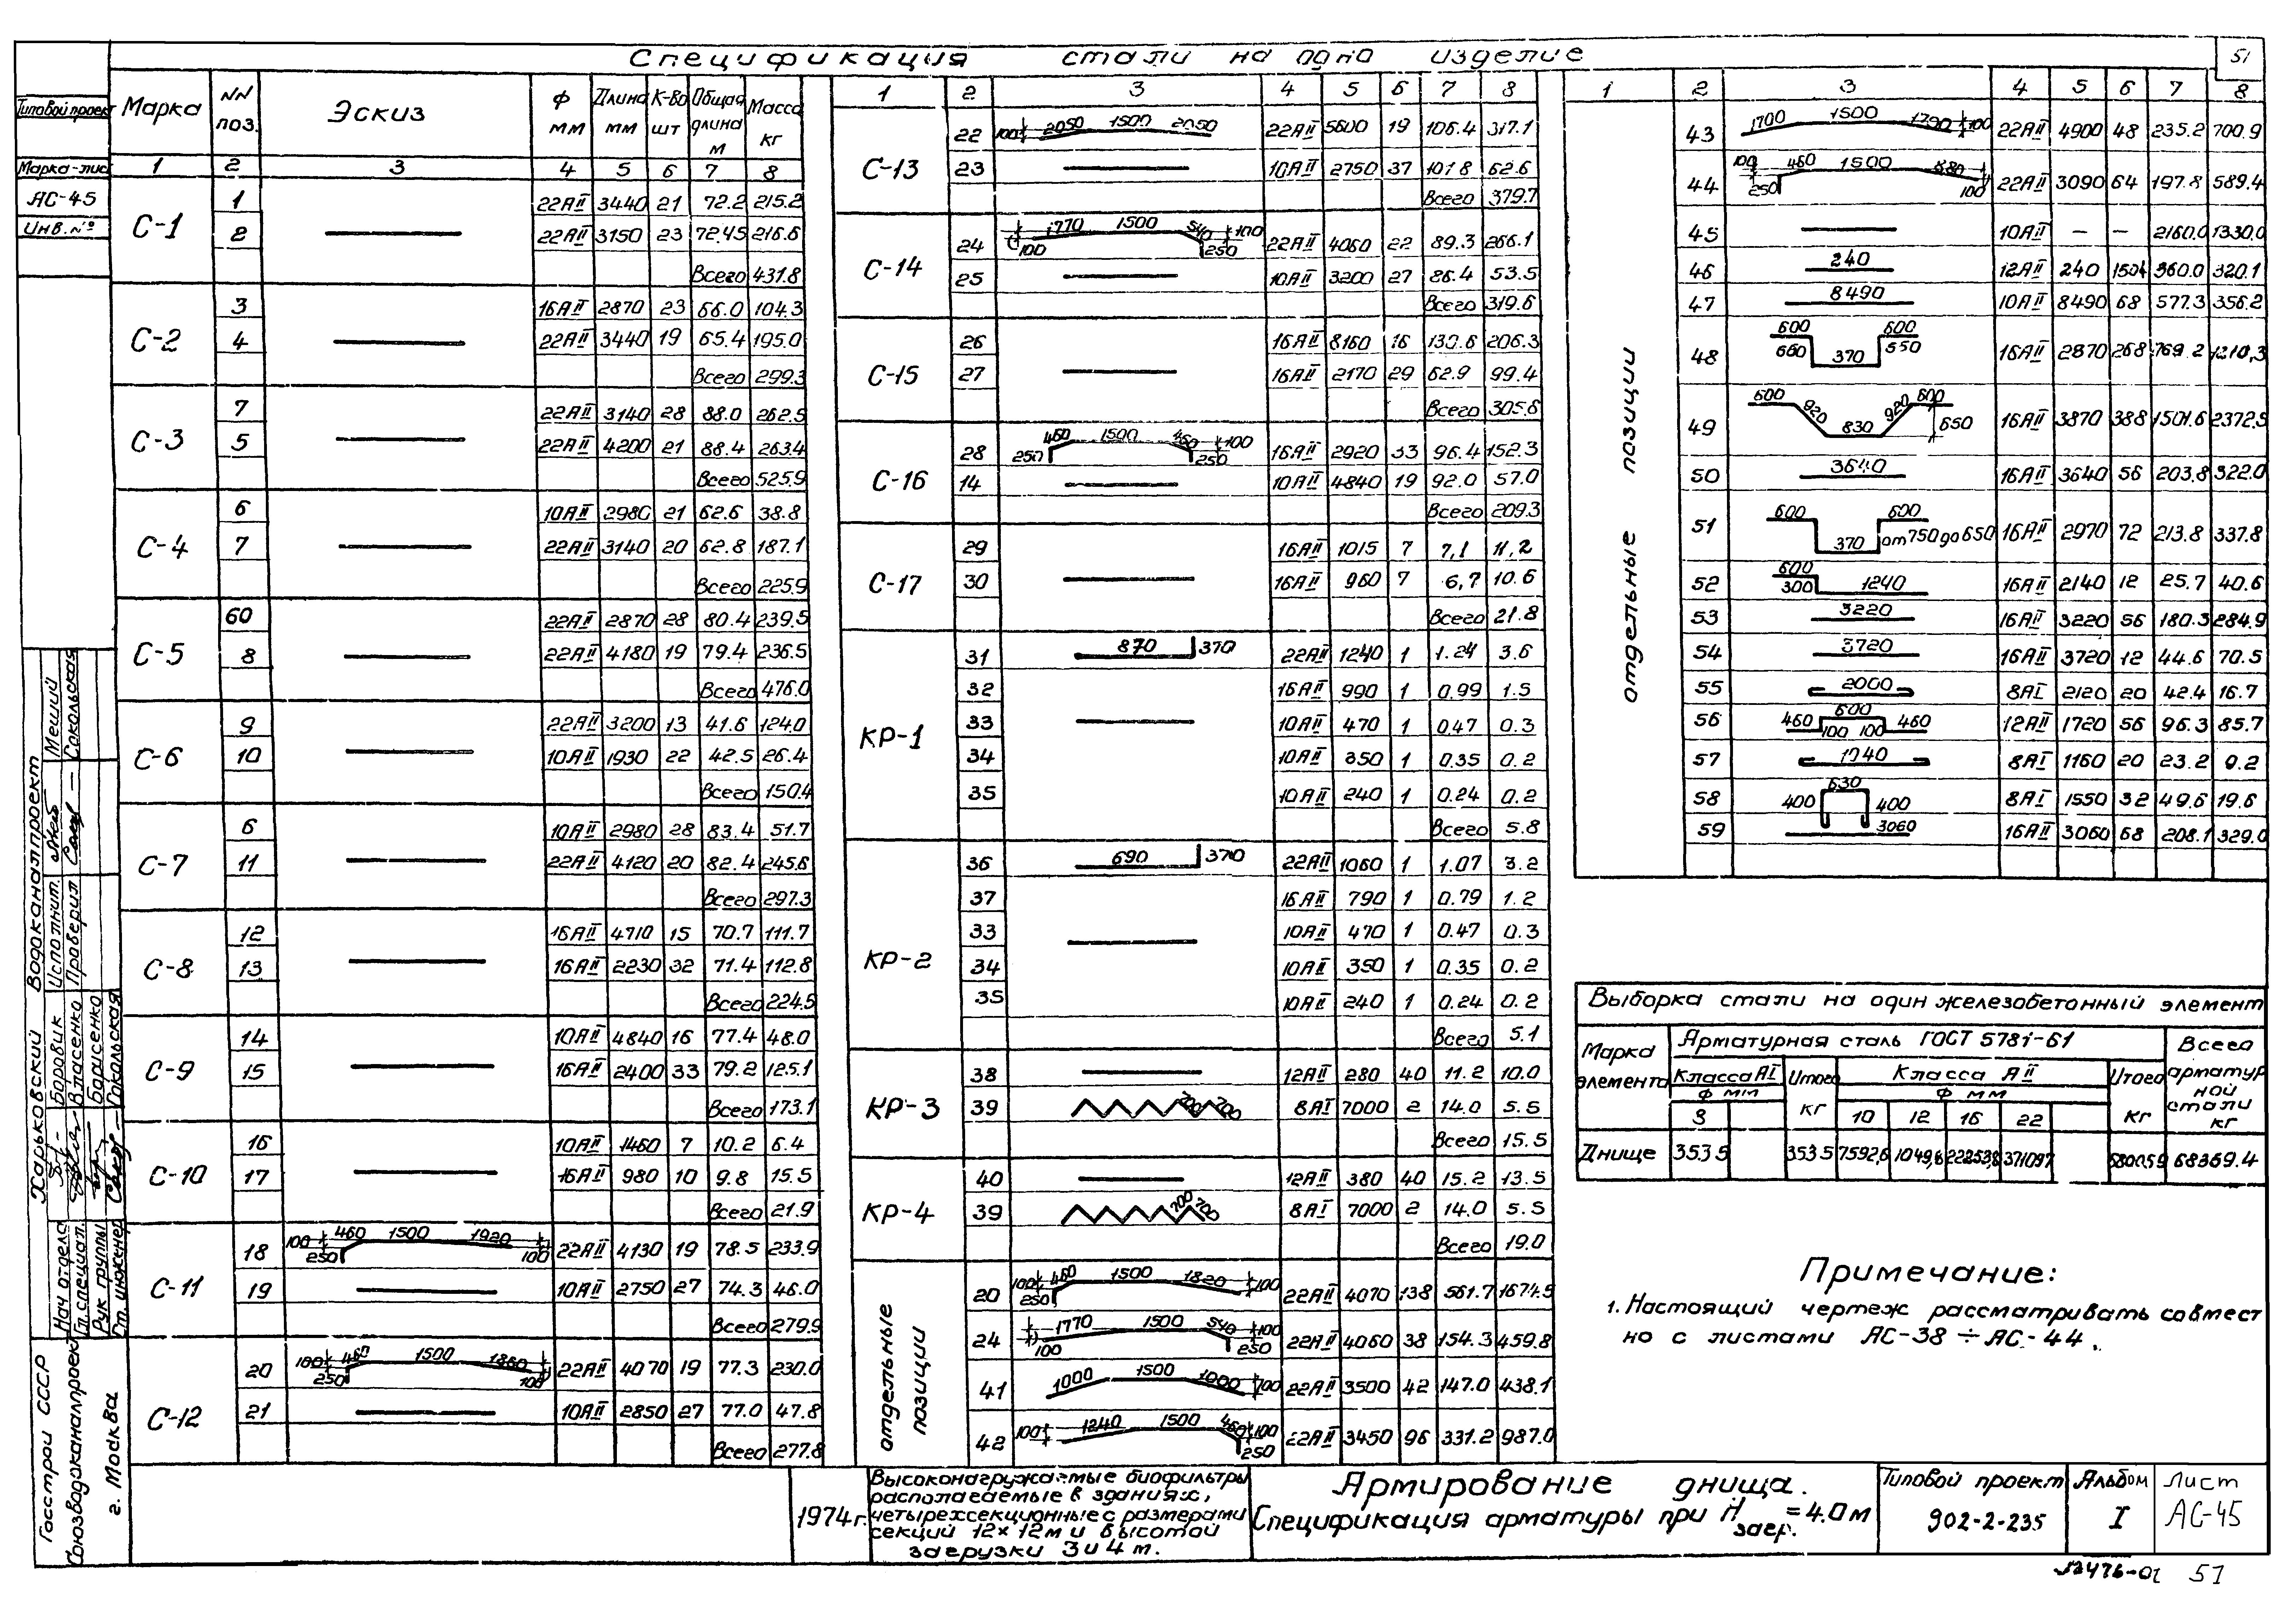 Спецификация стали на одно изделие
51
Типовой проект
Марка-лис
АС-45
Инв. №
Марка | NN поз. | Эскиз | Ф мм | Длина мм | К-во шт | Общая длина м | Масса кг
1 | 2 | 3 | 4 | 5 | 6 | 7 | 8
С-1
1 | 22АII | 3440 | 21 | 72.2 | 215.2
2 | 22АII | 3150 | 23 | 72.45 | 216.6
Всего 431.8
С-2
3 | 16АII | 2870 | 23 | 66.0 | 104.3
4 | 22АII | 3440 | 19 | 65.4 | 195.0
Всего 299.3
С-3
7 | 22АII | 3140 | 28 | 88.0 | 262.5
5 | 22АII | 4200 | 21 | 88.4 | 263.4
Всего 525.9
С-4
6 | 10АII | 2980 | 21 | 62.6 | 38.8
7 | 22АII | 3140 | 20 | 62.8 | 187.1
Всего 225.9
С-5
60 | 22АII | 2870 | 28 | 80.4 | 239.5
8 | 22АII | 4180 | 19 | 79.4 | 236.5
Всего 476.0
С-6
9 | 22АII | 3200 | 13 | 41.6 | 124.0
10 | 10АII | 1930 | 22 | 42.5 | 26.4
Всего 150.4
С-7
6 | 10АII | 2980 | 28 | 83.4 | 51.7
11 | 22АII | 4120 | 20 | 82.4 | 245.6
Всего 297.3
С-8
12 | 16АII | 4710 | 15 | 70.7 | 111.7
13 | 16АII | 2230 | 32 | 71.4 | 112.8
Всего 224.5
С-9
14 | 10АII | 4840 | 16 | 77.4 | 48.0
15 | 16АII | 2400 | 33 | 79.2 | 125.1
Всего 173.1
С-10
16 | 10АII | 1460 | 7 | 10.2 | 6.4
17 | 16АII | 980 | 10 | 9.8 | 15.5
Всего 21.9
С-11
18 | 100 250 460 1500 1920 100 | 22АII | 4130 | 19 | 78.5 | 233.9
19 | 10АII | 2750 | 27 | 74.3 | 46.0
Всего 279.9
С-12
20 | 100 250 460 1500 1860 100 | 22АII | 4070 | 19 | 77.3 | 230.0
21 | 10АII | 2850 | 27 | 77.0 | 47.8
Всего 277.8
1 | 2 | 3 | 4 | 5 | 6 | 7 | 8
С-13
22 | 100 2050 1500 2050 | 22АII | 5600 | 19 | 106.4 | 317.1
23 | 10АII | 2750 | 37 | 101.8 | 62.6
Всего 379.7
С-14
24 | 100 1770 1500 540 100 250 | 22АII | 4060 | 22 | 89.3 | 266.1
25 | 10АII | 3200 | 27 | 86.4 | 53.5
Всего 319.6
С-15
26 | 16АII | 8160 | 16 | 130.6 | 206.3
27 | 16АII | 2170 | 29 | 62.9 | 99.4
Всего 305.6
С-16
28 | 250 460 1500 460 100 250 | 16АII | 2920 | 33 | 96.4 | 152.3
14 | 10АII | 4840 | 19 | 92.0 | 57.0
Всего 209.3
С-17
29 | 16АII | 1015 | 7 | 7,1 | 11,2
30 | 16АII | 960 | 7 | 6,7 | 10.6
Всего 21.8
КР-1
31 | 870 370 | 22АII | 1240 | 1 | 1.24 | 3.6
32 | 16АII | 990 | 1 | 0.99 | 1.5
33 | 10АII | 470 | 1 | 0.47 | 0.3
34 | 10АII | 350 | 1 | 0.35 | 0.2
35 | 10АII | 240 | 1 | 0.24 | 0.2
Всего 5.8
КР-2
36 | 690 370 | 22АII | 1060 | 1 | 1.07 | 3.2
37 | 16АII | 790 | 1 | 0.79 | 1.2
33 | 10АII | 470 | 1 | 0.47 | 0.3
34 | 10АII | 350 | 1 | 0.35 | 0.2
35 | 10АII | 240 | 1 | 0.24 | 0.2
Всего 5.1
КР-3
38 | 12АII | 280 | 40 | 11.2 | 10.0
39 | 700 700 | 8АI | 7000 | 2 | 14.0 | 5.5
Всего 15.5
КР-4
40 | 12АII | 380 | 40 | 15.2 | 13.5
39 | 700 700 | 8АI | 7000 | 2 | 14.0 | 5.5
Всего 19.0
отдельные позиции
20 | 100 250 460 1500 1820 100 | 22АII | 4070 | 138 | 561.7 | 1674.5
24 | 100 1770 1500 540 100 250 | 22АII | 4060 | 38 | 154.3 | 459.8
41 | 1000 1500 1000 700 | 22АII | 3500 | 42 | 147.0 | 438.1
42 | 100 1240 1500 460 100 250 | 22АII | 3450 | 96 | 331.2 | 987.0
1 | 2 | 3 | 4 | 5 | 6 | 7 | 8
отдельные позиции
43 | 1700 1500 1700 100 | 22АII | 4900 | 48 | 235.2 | 700.9
44 | 100 250 460 1500 880 100 | 22АII | 3090 | 64 | 197.8 | 589.4
45 | 10АII | — | — | 2160.0 | 1330.0
46 | 240 | 12АII | 240 | 1504 | 360.0 | 320.1
47 | 8490 | 10АII | 8490 | 68 | 577.3 | 356.2
48 | 600 660 370 600 550 | 16АII | 2870 | 268 | 769.2 | 1210,3
49 | 600 920 830 920 600 650 | 16АII | 3870 | 388 | 1501.6 | 2372.5
50 | 3640 | 16АII | 3640 | 56 | 203.8 | 322.0
51 | 600 370 600 от 750 до 650 | 16АII | 2970 | 72 | 213.8 | 337.8
52 | 600 300 1240 | 16АII | 2140 | 12 | 25.7 | 40.6
53 | 3220 | 16АII | 3220 | 56 | 180.3 | 284.9
54 | 3720 | 16АII | 3720 | 12 | 44.6 | 70.5
55 | 2000 | 8АI | 2120 | 20 | 42.4 | 16.7
56 | 460 600 100 100 460 | 12АII | 1720 | 56 | 96.3 | 85.7
57 | 1040 | 8АI | 1160 | 20 | 23.2 | 9.2
58 | 400 630 400 | 8АI | 1550 | 32 | 49.6 | 19.6
59 | 3060 | 16АII | 3060 | 68 | 208.1 | 329.0
Выборка стали на один железобетонный элемент
Марка элемента | Арматурная сталь ГОСТ 5781-61 | Всего арматурной стали кг
Класса АI | Итого кг | Класса АII | Итого кг
Ф мм | Ф мм
8 | 10 | 12 | 16 | 22
Днище | 353.5 | 353.5 | 7592,6 | 1049,6 | 22253,8 | 37109.7 | 68005.9 | 68369.4
Примечание:
1. Настоящий чертеж рассматривать совмест
но с листами АС-38 ÷ АС-44.
Харьковский Водоканалпроект
Исполнит. Меший
Проверил Сокольская
Нач отдела Боровик
Гл. специал. Власенко
Рук группы Барисенко
Ст. инженер Сокольская
Госстрой СССР
Союзводоканалпроект
г. Москва
1974г.
Высоконагружаемые биофильтры
располагаемые в зданиях,
четырехсекционные с размерами
секций 12×12м и высотой
загрузки 3 и 4 м.
Армирование днища.
Спецификация арматуры при Hзагр. = 4.0 м
Типовой проект
902-2-235
Альбом
I
Лист
АС-45
51